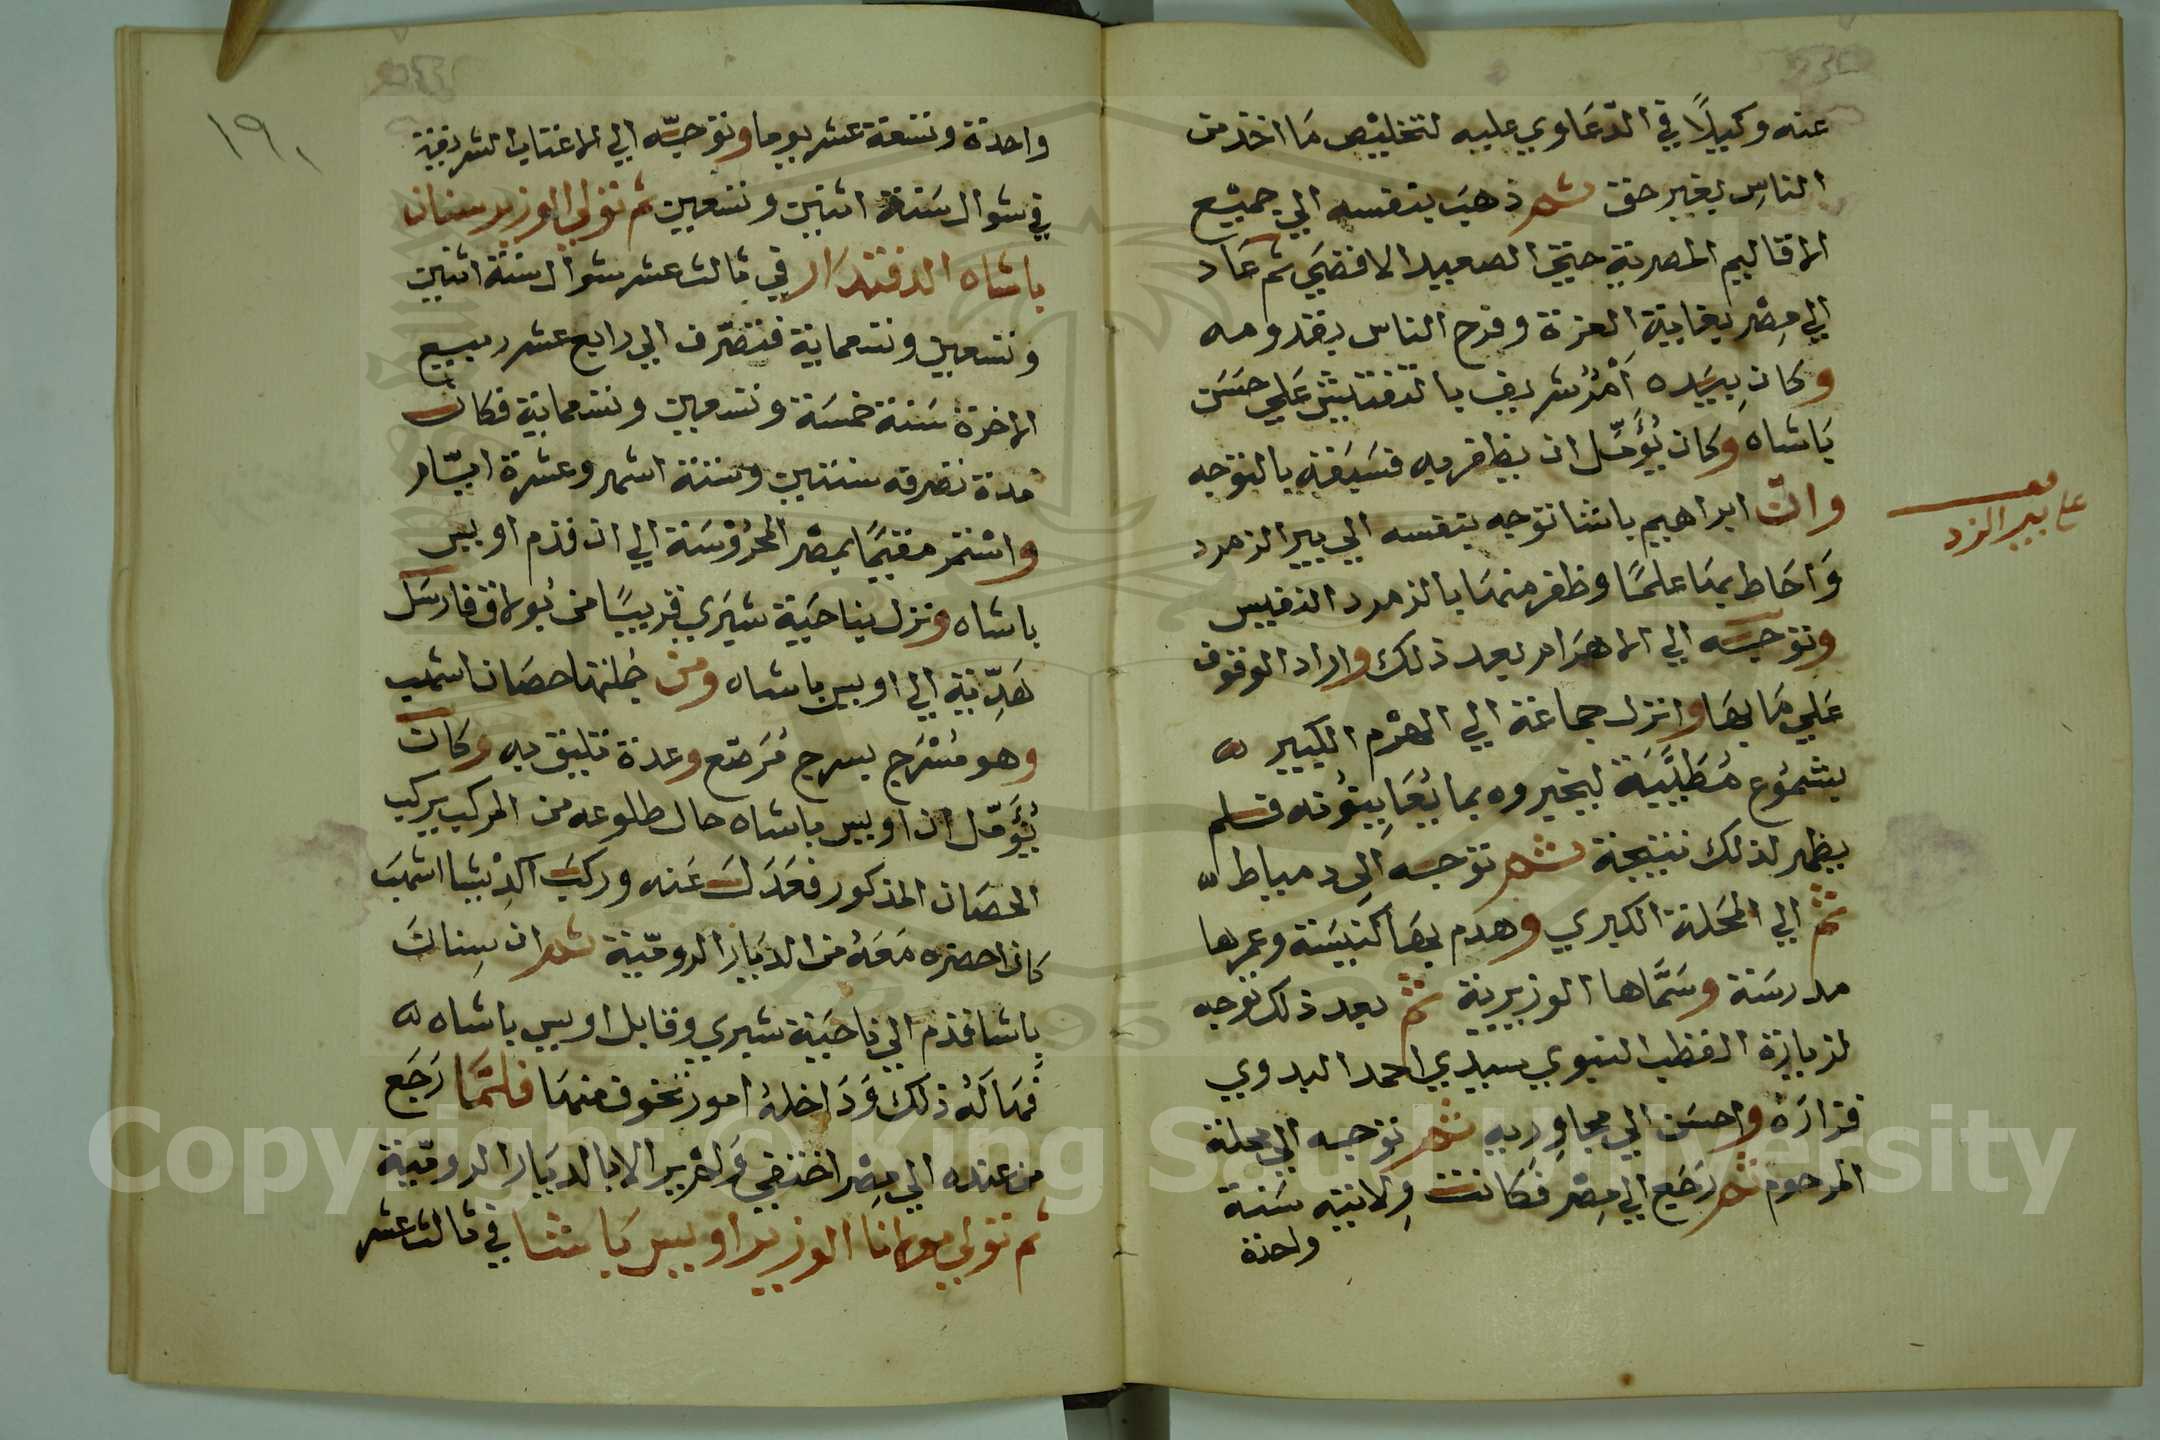 عنه وكيلاً في الدعاوي عليه لتخليص ما اخذ من
الناس بغير حق ثم ذهب بنفسه الي جميع
الاقاليم المصرية حتي الصعيد الاقصي ثم عاد
الي مصر بغاية العزة وفرح الناس بقدومه
وكان بيده أمر شريف بالتفتيش علي حسن
باشاه وكان يؤمل ان يظفر به فسبقه بالتوجه
وان ابراهيم باشا توجه بنفسه الي بير الزمرد
واحاط بها علما وظفر منها بالزمرد النفيس
وتوجه الي الاهرام بعد ذلك واراد الوقوف
علي ما بها وانزل جماعة الي الهرم الكبير
بشموع مطيبة ليخبروه بما يعاينونه فلم
يظهر لذلك نتيجة ثم توجه الي دمياط
ثم الي المحلة الكبري وهدم بها كنيسة وعمرها
مدرسة وسماها الوزيرية ثم بعد ذلك توجه
لزيارة القطب النبوي سيدي احمد البدوي
فزاره واحسن الي مجاوريه ثم توجه الي محلة
المرحوم ثم رجع الي مصر فكانت ولايته سنة
واحدة
علي بير الزمرد
١٩١
واحدة وتسعة عشر يوما وتوجه الي الاعتاب الشريفة
في شوال سنة اثنين وتسعين ثم تولي الوزير سنان
باشاه الدفتدار في ثالث عشر شوال سنة اثنين
وتسعين وتسعماية فتصرف الي رابع عشر ربيع
الاخرة سنة خمسة وتسعين وتسعماية فكان
مدة تصرفه سنتين وستة اشهر وعشرة ايام
واستمر مقيما بمصر المحروسة الي ان قدم اويس
باشاه ونزل بناحية شبري قريبا من بولاق فارسل
هدية الي اويس باشاه ومن جملتها حصان اشهب
وهو مسرج بسرج مرصع وعدة تليق به وكان
يؤمل ان اويس باشاه حال طلوعه من المركب يركب
الحصان المذكور فعدل عنه وركب اكديشا اشهب
كان احضره معه من الديار الرومية ثم ان سنان
باشا قدم الي ناحية شبري وقابل اويس باشاه
فهاله ذلك وداخله امور تخوف منها فلما رجع
من عنده الي مصر اختفي ولم ير الا بالديار الرومية
ثم تولي مولانا الوزير اويس باشا في ثالث عشر
Copyright © King Saud University